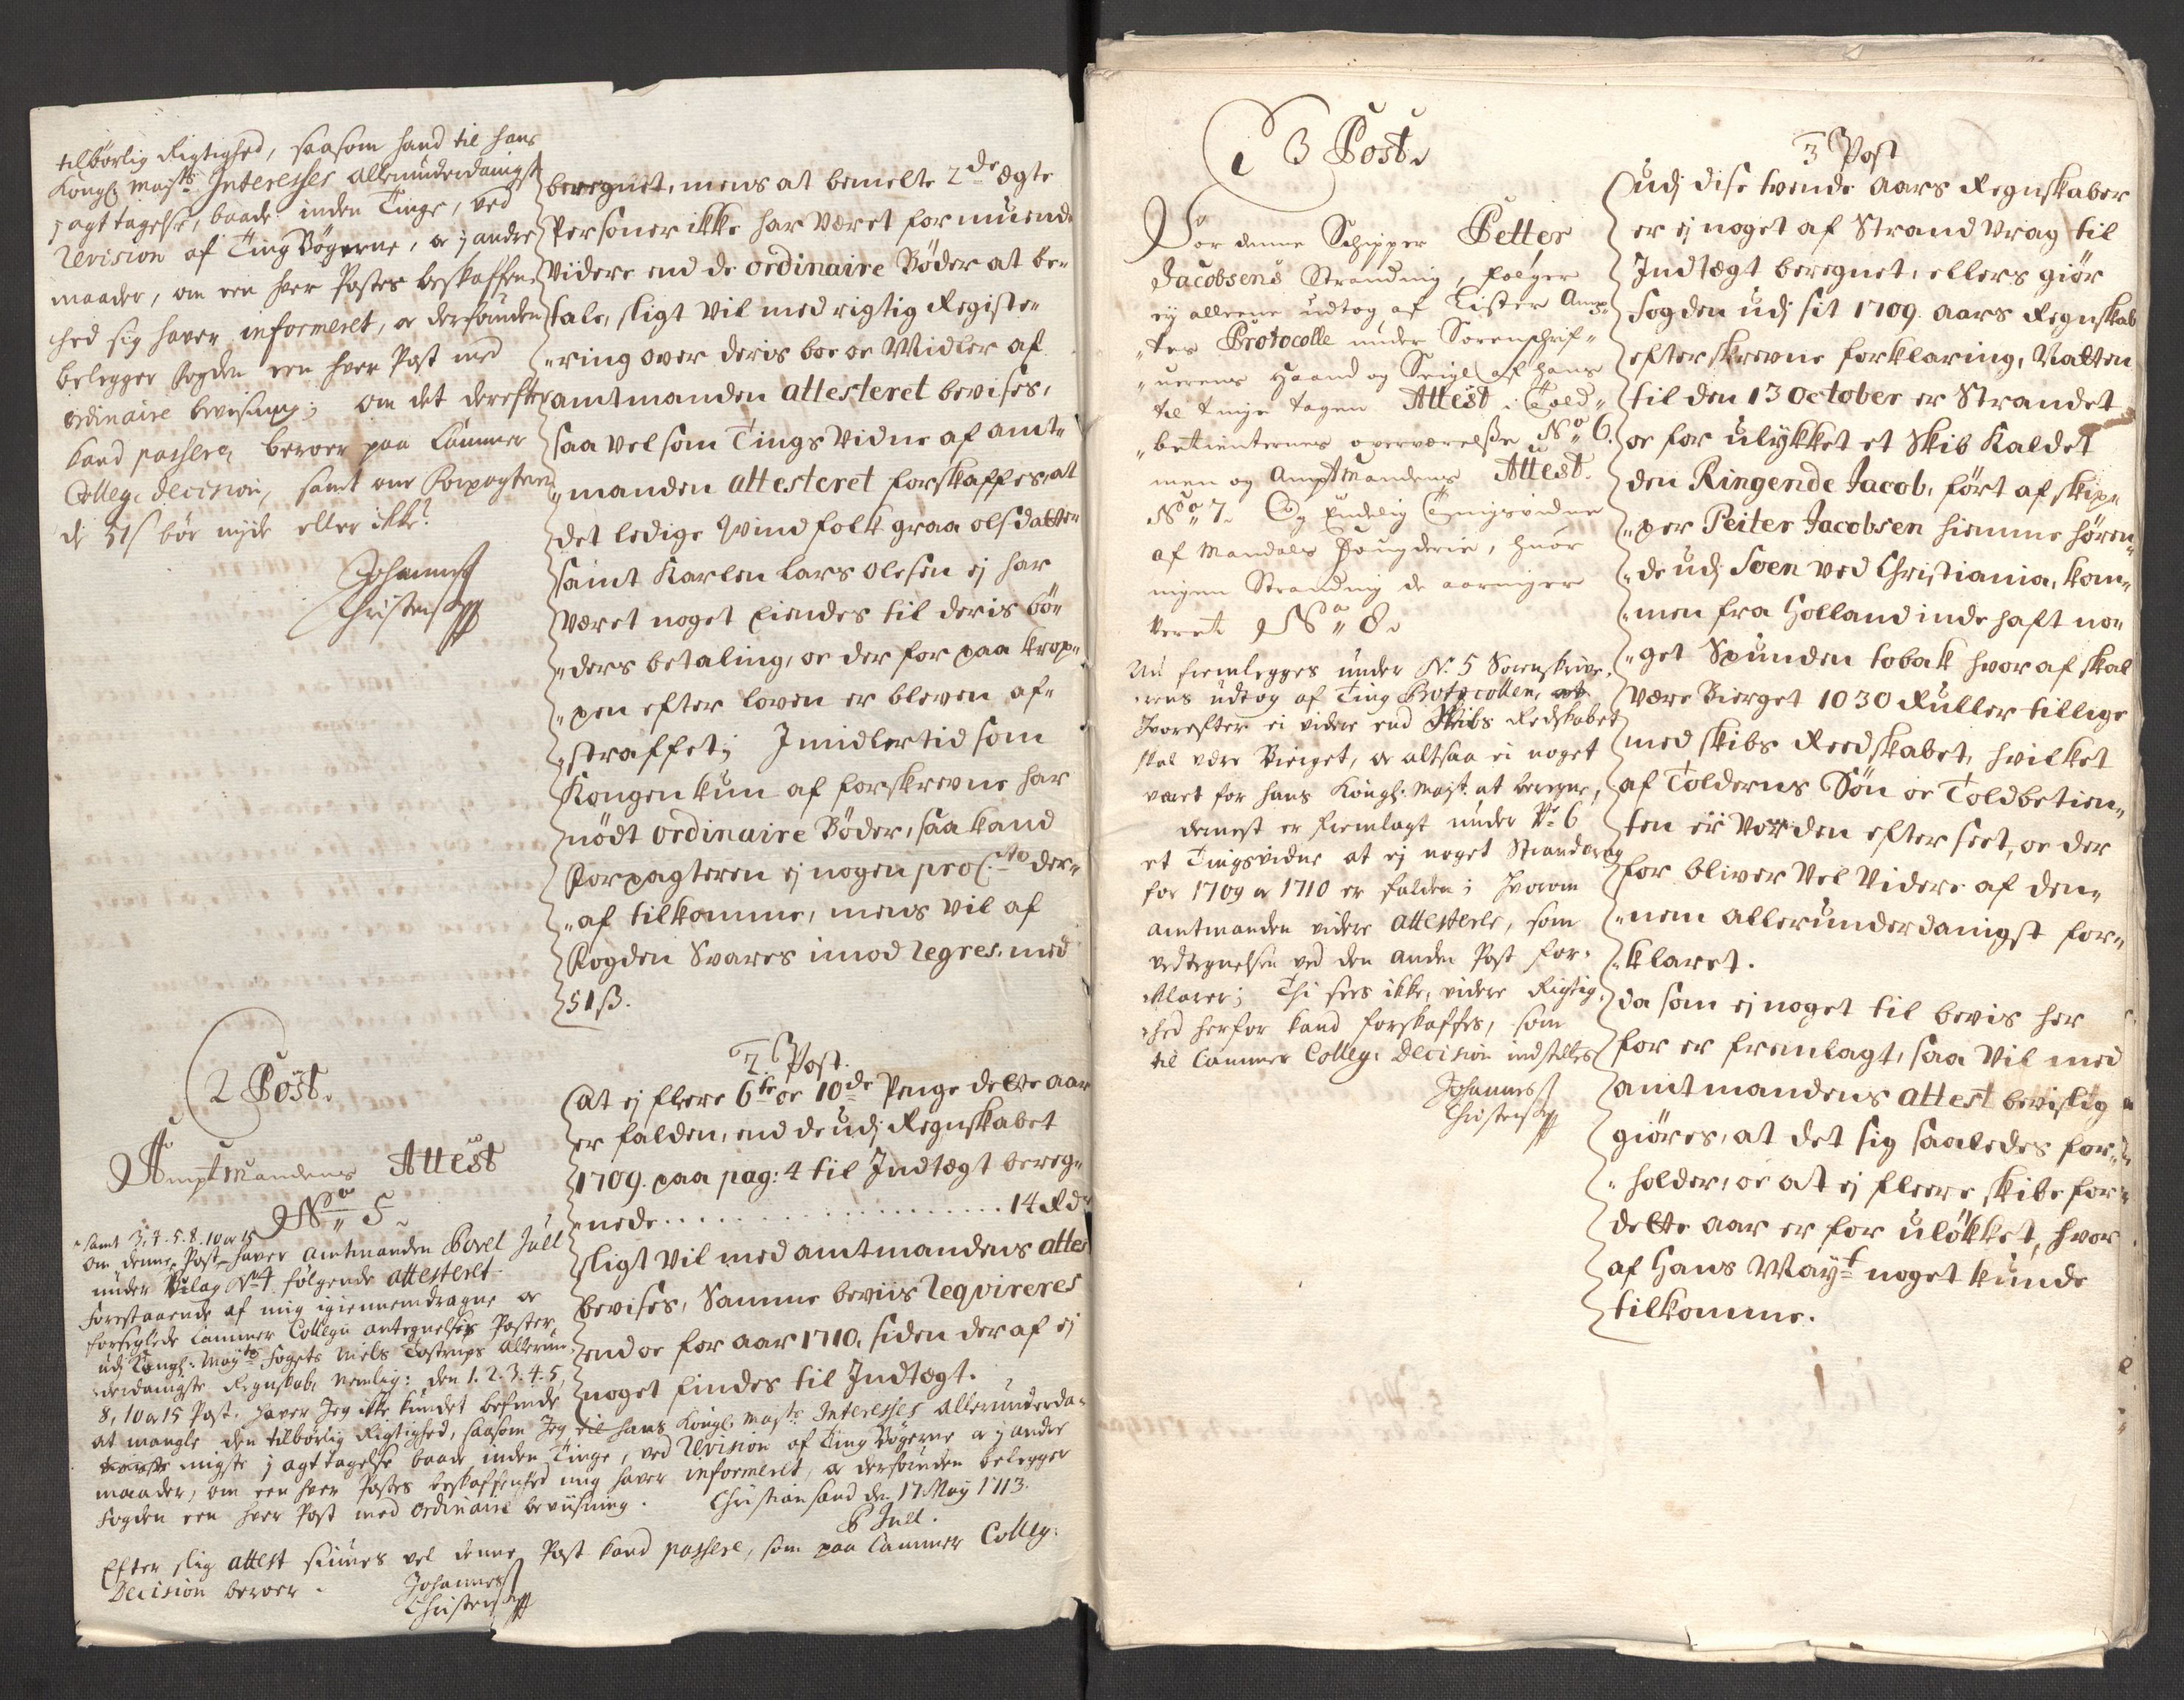 tilbörlig Rigtighed, saasom hand til hans
Kongl: Maj:ts Interesses allerunderdanigst
j agt tagelse, baade inden Tinge, ved
Revision af TingBögerne, oc j andre
maader, om een hver Postes beskaffen-
hed sig haver informeret, oc dersunden
belegger fogden een hver Post med
ordinaire beviisning; om det derefter
kand passere, beroer paa Cammer
Colleg: decision, samt om Forpagteren
de 51ß bör nyde eller ikke?
Johannes
Christens
2 Post.
AmptMandens Attest
No 5
samt 3. 4. 5. 8. 10 oc 15
om denne Post haver Amtmanden Povel Juell
under Bilag No 4 fölgende attesteret.
Forestaaende af mig igiennemdragne oc
forseglede Cammer Collegii antegnelses Poster
udj Kongl: May:ts fogets Niels Tostrups allerun-
derdanigste Regnskab, nemlig: den 1. 2. 3. 4. 5,
8, 10 oc 15 Post, haver Jeg ikke kundet befinde
at mangle den tilbörlig Rigtighed, saasom Jeg til hans Kongl. Maj:ts Interesses allerunderda-
nigste j agt tagelse baade inden Tinge, ved Revision af Ting Bögerne oc j andre
maader, om een hver Postes beskaffenhed mig haver informeret, oc dersunden belegger
fogden een hver Post med ordinaire beviisning. Christiansand den 17 May 1713.
P Juell.
Efter slig attest siunes vel denne Post kand passere, som paa Cammer Colleg:
Decision beroer.
Johannes
Christens
beregnet, mens at bemelte 2de ægte
Personer ikke har været formuende
Viidere end de ordinaire Böder at be„
tale, sligt Vil med rigtig Registe„
„ring over deris boe oc Midler af
amtmanden attesteret bevises,
saa vel som Tings Vidne af amt„
„manden attesteret forskaffes, at
det ledige Qvindfolk graa olsdatter
samt Karlen Lars Olesen ej har
Været noget Eiendes til deris bö„
„ders betaling, oc der for paa krop„
„pen efter loven er bleven af„
„straffet; Jmidlertid som
Kongen kun af forskrevne har
nödt ordinaire Böder, saa kand
Forpagteren ej nogen pro C:to der„
„af tilkomme, mens vil af
Fogden Svares imod Regres. med
51ß.
2. Post.
At ej flere 6te oc 10de Penge dette aar
er falden, end de udj Regnskabet
1709. paa pag: 4 til Indtægt bereg„
„nede . . . . . . . . . . . . 14 Rd
sligt Vil med amtmandens attest
bevises, Samme beviis Reqvireres
end oc for aar 1710. siden der af ej
noget findes til Indtægt.
3 Post.
For denne Schipper Petter
Jacobsens Stranding, fölger
eij alleene udtog af Lister Amp„
„tes Protocolle under Sorenschrif„
„verens Haand og Seigl af hans
til tinge tagen Attest i Told„
„betienternes overværelße No 6.
men og AmptMandens Attest.
No 7. Og Endelig Tingsvidne
af Mandals Fougderie, hvor
ingen Stranding de aaringer
veret No 8.
Nu fremlegges under N: 5 Sorenskrive-
rens udtog af Ting Protocollen,
hvorefter ei videre end Skibs Redskabet
skal være Bierget, oc altsaa ei noget
været for hans Kongl. Majt: at beregne,
dernest er fremlagt under No 6
et Tingsvidne at ej noget Strandvrag
for 1709 oc 1710 er falden; hvorom
amtmanden videre attesterer, som
vedtegnelsen ved den anden Post for-
klarer; Thi sees ikke, videre Rigtig-
hed herfor kand forskaffes, som
til Cammer Colleg: Decision indstilles
Johannes
Christens
3 Post
Udj dise tvende aars Regnskaber
er ej noget af Strand Vrag til
Indtægt beregnet, ellers giör
fogden udj sit 1709. aars Regnskab
efterskrevne forklaring, Natten
til den 13 October er Strandet
oc for ulykket et Skib kaldet
den Ringende Jacob, fört af skip„
„per Peiter Jacobsen hiemme hören„
„de udj Soen ved Christiania, kom„
„men fra Holland inde haft no„
„get Spunden tobak hvor af skal
være Bierget 1030 Ruller tillige
med skibs Reedskabet, hvilket
af Tolderns Sön oc Toldbetien„
ten er Vorden efter seet, oc der
for bliver Vel Videre af den„
„nem allerunderdanigst for„
„klaret.
da som ej noget til bevis her
for er fremlagt, saa Vil med
amtmandens attest bevislig
giöres, at det sig saaledes for„
„holder, oc at ej fleere skibe for
dette aar er for ulökket, hvor
af Hans May:t noget kunde
tilkomme.